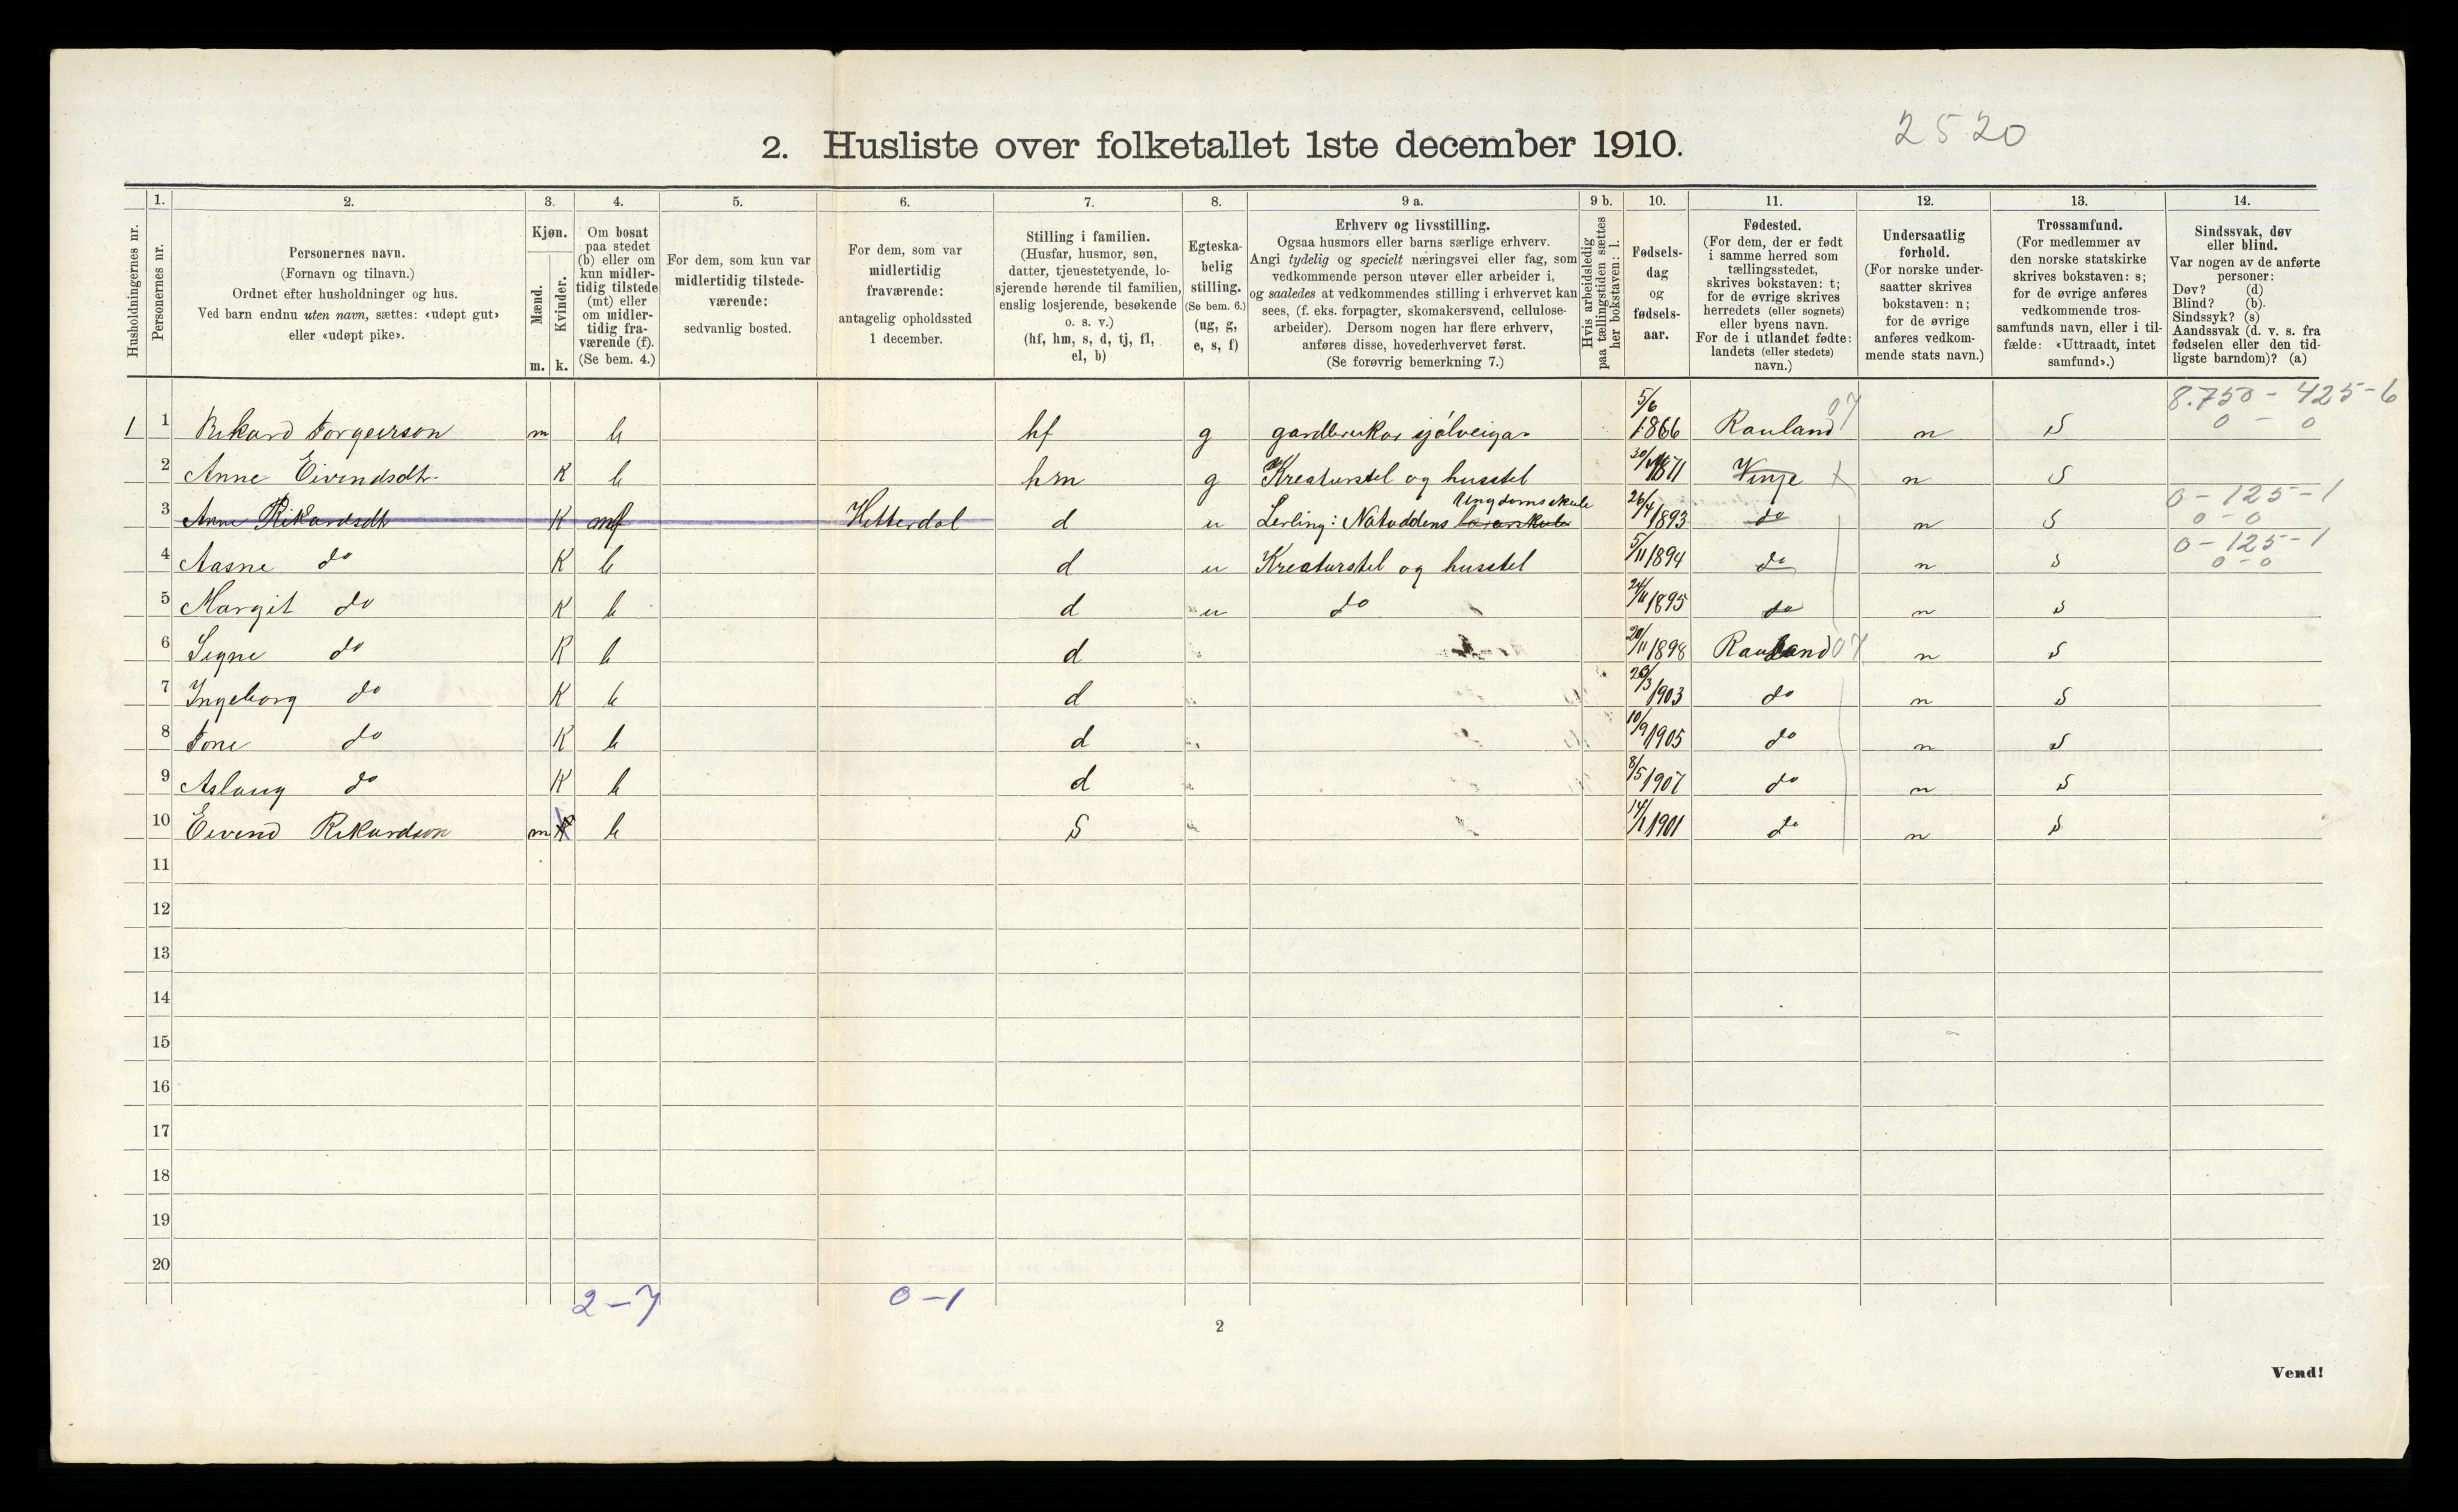 2520
2. Husliste over folketallet 1ste december 1910.
Husholdningernes nr.
1.
Personernes nr.
2.
Personernes navn.
(Fornavn og tilnavn.)
Ordnet efter husholdninger og hus.
Ved barn endnu uten navn, sættes: «udøpt gut»
eller «udøpt pike».
3.
Kjøn.
Mænd.
Kvinder.
m. k.
4.
Om bosat
paa stedet
(b) eller om
kun midler-
tidig tilstede
(mt) eller
om midler-
tidig fra-
værende (f).
(Se bem. 4.)
5.
For dem, som kun var
midlertidig tilstede-
værende:
sedvanlig bosted.
6.
For dem, som var
midlertidig
fraværende:
antagelig opholdssted
1 december.
7.
Stilling i familien.
(Husfar, husmor, søn,
datter, tjenestetyende, lo-
sjerende hørende til familien,
enslig losjerende, besøkende
o. s. v.)
(hf, hm, s, d, tj, fl,
el, b)
8.
Egteska-
belig
stilling.
(Se bem. 6.)
(ug, g,
e, s, f)
9 a.
Erhverv og livsstilling.
Ogsaa husmors eller barns særlige erhverv.
Angi tydelig og specielt næringsvei eller fag, som
vedkommende person utøver eller arbeider i,
og saaledes at vedkommendes stilling i erhvervet kan
sees, (f. eks. forpagter, skomakersvend, cellulose-
arbeider). Dersom nogen har flere erhverv,
anføres disse, hovederhvervet først.
(Se forøvrig bemerkning 7.)
9 b.
Hvis arbeidsledig
paa tællingstiden sættes
her bokstaven: l.
10.
Fødsels-
dag
og
fødsels-
aar.
11.
Fødested.
(For dem, der er født
i samme herred som
tællingsstedet,
skrives bokstaven: t;
for de øvrige skrives
herredets (eller sognets)
eller byens navn.
For de i utlandet fødte:
landets (eller stedets)
navn.)
12.
Undersaatlig
forhold.
(For norske under-
saatter skrives
bokstaven: n;
for de øvrige
anføres vedkom-
mende stats navn.)
13.
Trossamfund.
(For medlemmer av
den norske statskirke
skrives bokstaven: s;
for de øvrige anføres
vedkommende tros-
samfunds navn, eller i til-
fælde: «Uttraadt, intet
samfund».)
14.
Sindssvak, døv
eller blind.
Var nogen av de anførte
personer:
Døv? (d)
Blind? (b).
Sindssyk? (s)
Aandssvak (d. v. s. fra
fødselen eller den tid-
ligste barndom)? (a)
8.750 - 425 - 6
0 - 0
1 1 Rikard Torgeirson m b hf g gardbrukar sjølveigar 5/6 1866 Rauland 07 n S
2 Anne Eivendsdtr. K b hm g Kreaturstel og husstel 1871 Vinje n S
0 - 125 - 1
0 - 0
3 Anne Rikardsdtr K mf Hitterdal d u Lerling: Notoddens Ungdomsskule 26/4 1893 do n S
0 - 125 - 1
0 - 0
4 Aasne do K b d u Kreaturstel og husstel 5/11 1894 do n S
5 Margit do K b d u do 24/11 1895 do n S
6 Signe do K b d 20/11 1898 Rauland 07 n S
7 Ingeborg do K b d 1903 do n S
8 Tone do K b d 10/9 1905 do n S
9 Aslaug do K b d 8/5 1907 do n S
10 Eivend Rikardson m b S 14/1 1901 do n S
11
12
13
14
15
16
17
18
19
20
2 - 7 0 - 1
2
Vend!